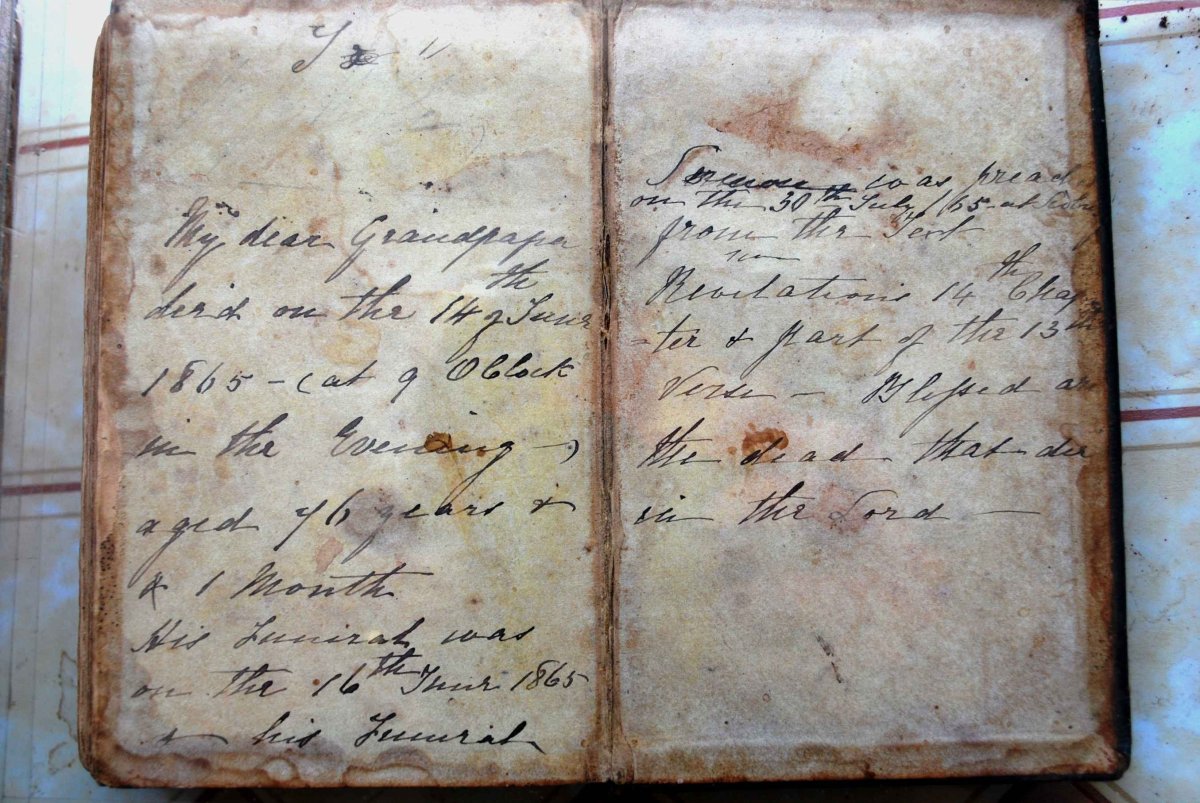 My dear Grandpapa
died on the 14th of June
1865 - (at 9 OClock
in the Evening -)
aged 76 years &
& 1 Month
His Funeral was
on the 16th June 1865
& his Funeral
Sermon was preach
on the 30th July /65 at
from the Text
Revelations 14th Chap
-ter & part of the 13th
Verse - Blessed are
the dead that die
in the Lord -